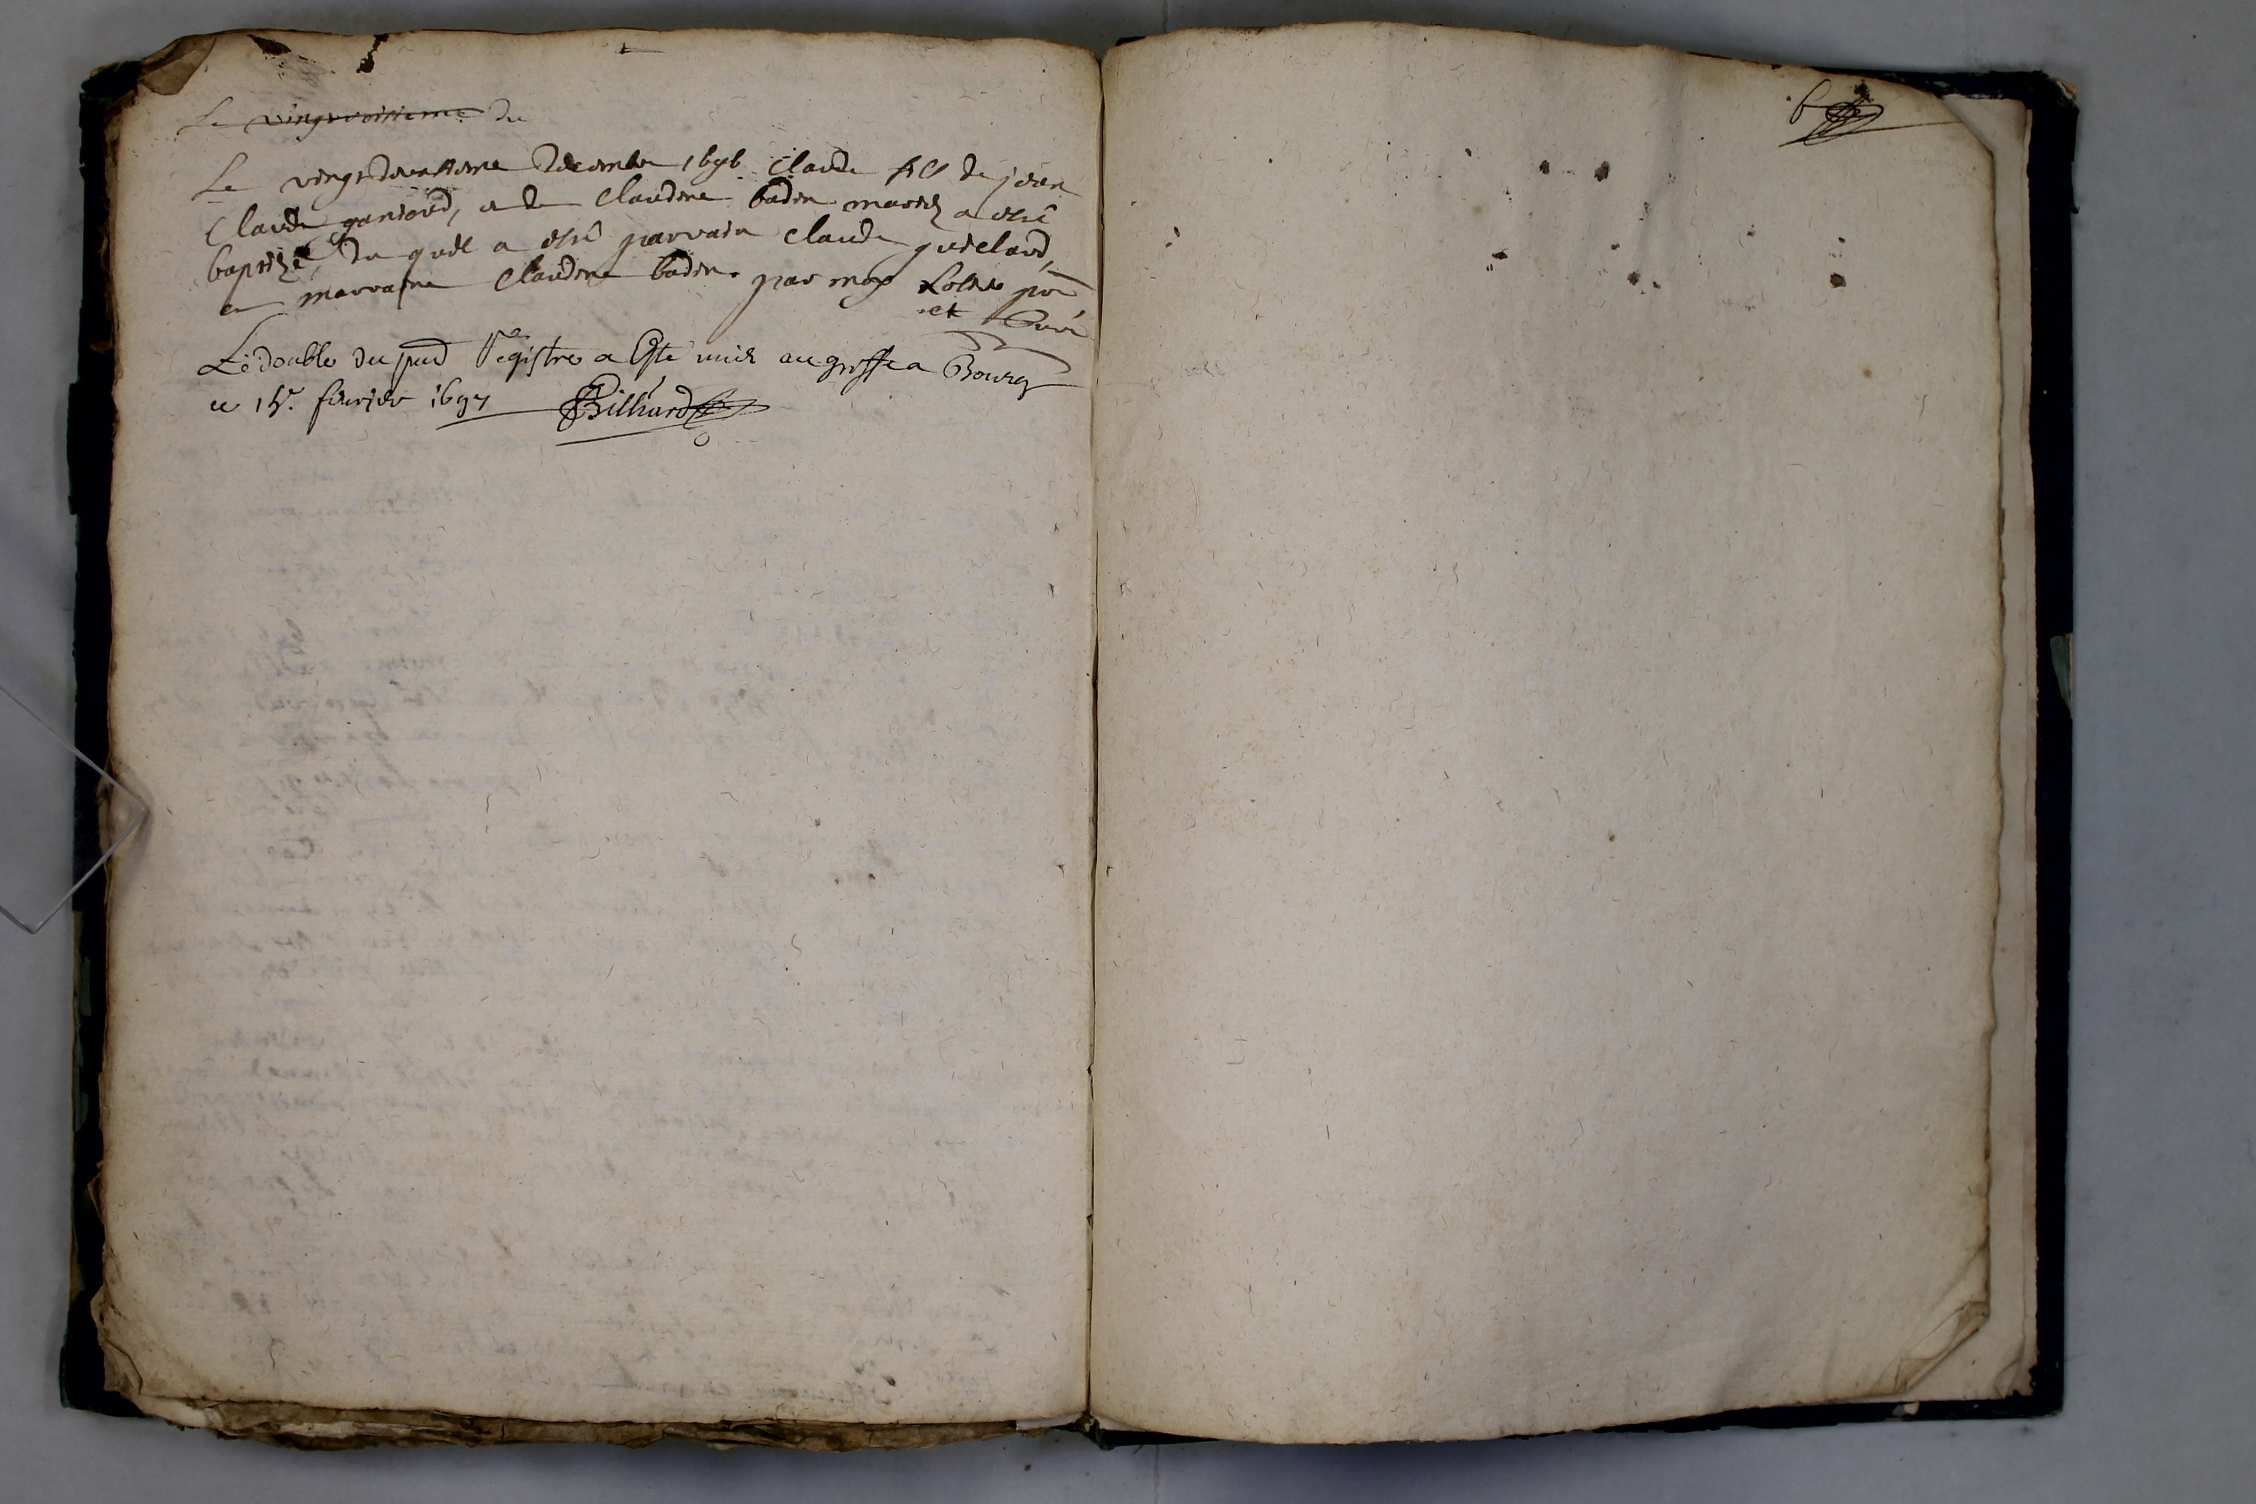 Le vingtroisieme du
Le vingtdeuxsieme decembre 1696 Claude fils de jean
Claude ganiard, et de Claudine badin mariez a esté
baptizé, du quel a esté parrain Claude guichard,
et marraine Claudine badin. par moy pre
et Curé
Le double du pnt Registre a Esté mis au greffe a Bourg
ce 15e. feburier 1697 Billiard
6